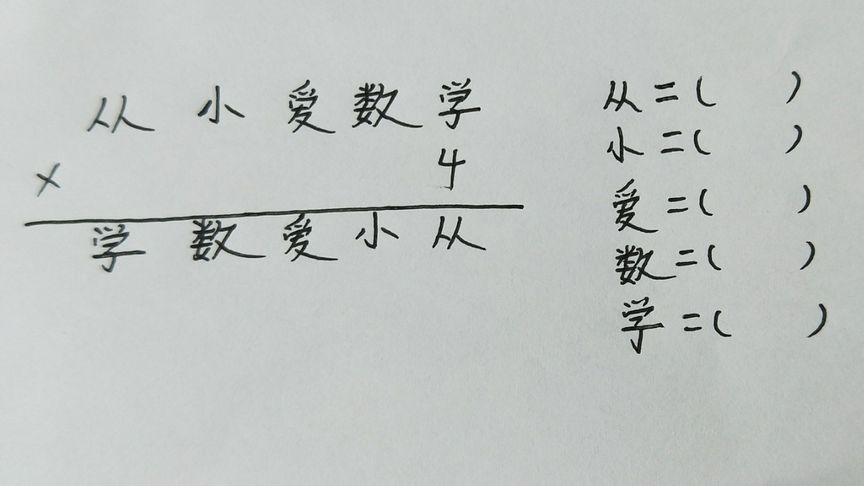 从小爱数学
× 4
学数爱小从
从=( )
小=( )
爱=( )
数=( )
学=( )